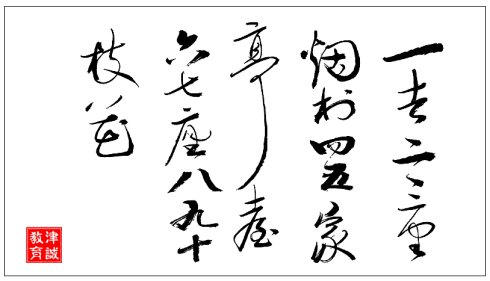 一去二三里
烟村四五家
亭臺
六七座八九十
枝花
津誠
教育